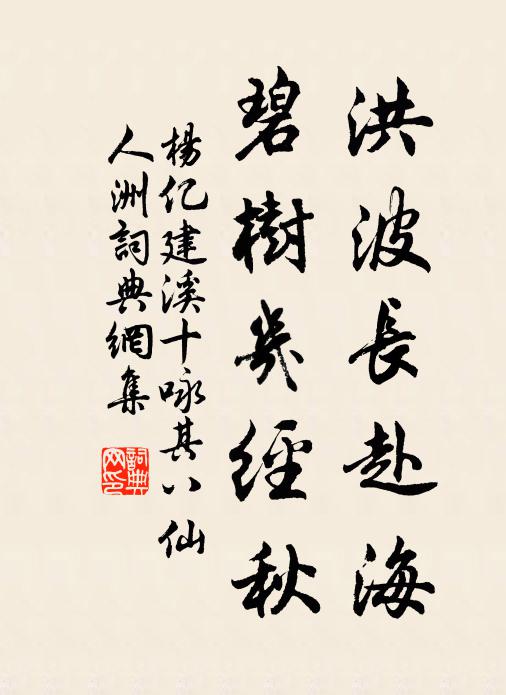 洪波長赴海
碧樹幾經秋
楊亿建溪十咏其八仙
人洲詞典網集
詞典
网印